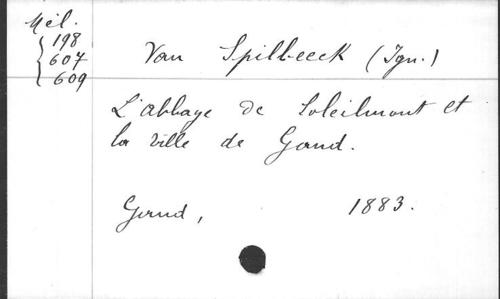 Mél.
198
607
609
Van Spilbeeck (Ign.)
L'abbaye de Soleilmont et
la ville de Gand.
Gand, 1883.